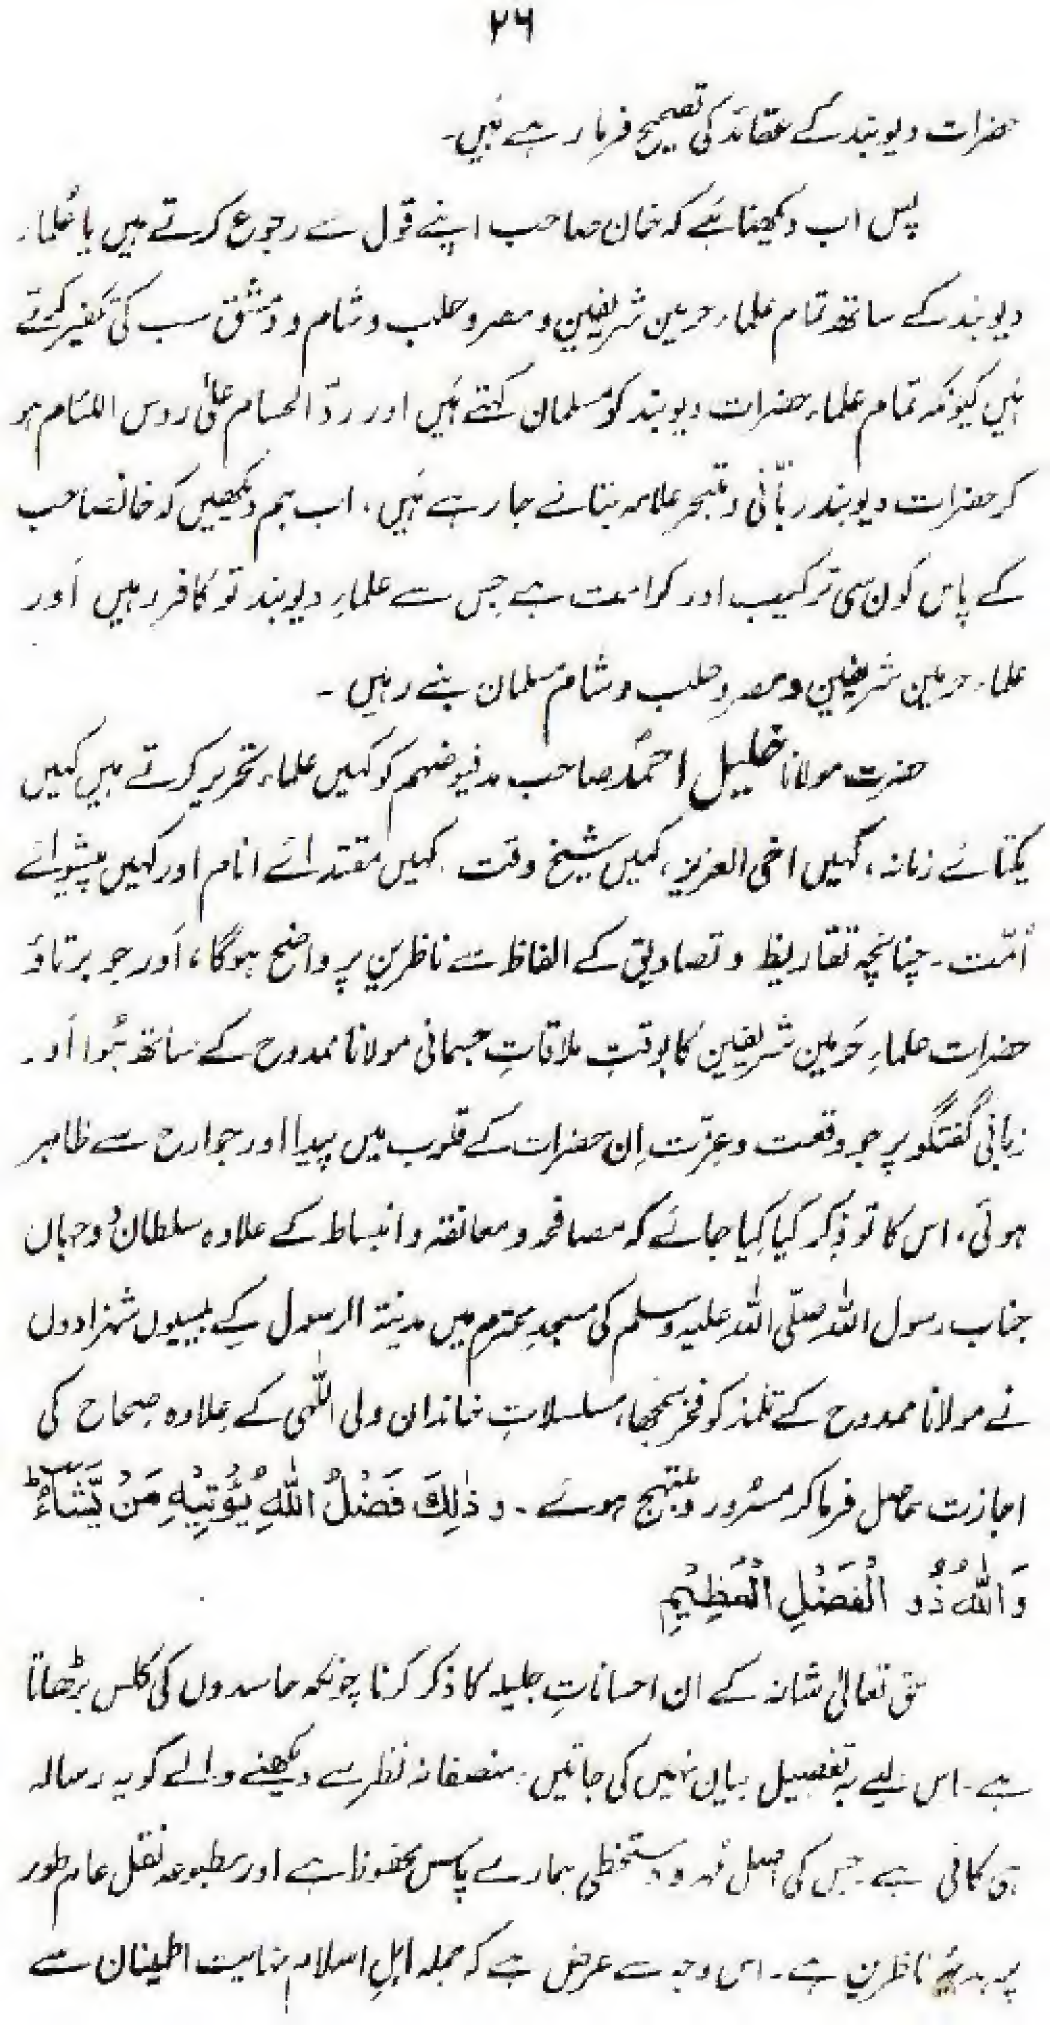 ۲۶
حضرات دیوبند کے عقائد کی تصحیح فرما رہے ہیں۔
پس اب دیکھنا ہے کہ خان صاحب اپنے قول سے رجوع کرتے ہیں یا علماء
دیوبند کے ساتھ تمام علماء حرمین شریفین و مصر و حلب و شام و دمشق سب کی تکفیر کرتے
ہیں کیونکہ تمام علماء حضرات دیوبند کو مسلمان کہتے ہیں اور ردّ الحسام علیٰ روس اللئام ہو
کر حضرات دیوبند ربّانی و متبحر علامہ بتائے جا رہے ہیں، اب ہم دیکھیں کہ خانصاحب
کے پاس کون سی ترکیب اور کرامت ہے جس سے علماءِ دیوبند تو کافر رہیں اَور
علماء حرمین شریفین و مصر و حلب و شام مسلمان بنے رہیں ۔
حضرت مولانا خلیل احمدؐ صاحب مدفیوضہم کو کہیں علماء تحریر کرتے ہیں کہیں
یکتائے زمانہ، کہیں اخی العزیز، کہیں شیخ وقت، کہیں مقتدائے انام اور کہیں پیشوائے
اُمّت۔ چنانچہ تقاریظ و تصادیق کے الفاظ سے ناظرین پر واضح ہوگا، اَور جو برتاؤ
حضرات علماءِ حَرمین شریفین کا بوقتِ ملاقاتِ جسمانی مولانا ممدوح کے ساتھ ہُوا اَور
زبانی گفتگو پر جو وقعت و عزّت اِن حضرات کے قلوب میں پیدا اور جوارح سے ظاہر
ہوئی، اس کا تو ذِکر کیا کِیا جائے کہ مصافحہ و معانقہ و انبساط کے علاوہ سلطانِ دُوجہاں
جناب رسول اللہ صلّی اللہ علیہ وسلم کی مسجدِ محترم میں مدینۃ الرسول کے بیسیوں شہزادوں
نے مولانا ممدوح کے تلمّذ کو فخر سمجھا، مسلسلاتِ خاندان ولی اللّٰہی کے علاوہ صحاح کی
اجازت حاصل فرما کر مسْرور و مُبتہج ہوئے ۔ و ذٰلِكَ فَضْلُ اللّٰهِ يُؤْتِيْهِ مَنْ يَّشَآءُ ؕ
وَاللّٰهُ ذُو الْفَضْلِ الْعَظِيْمِ
حق تعالیٰ شانہ کے ان احساناتِ جلیلہ کا ذکر کرنا چونکہ حاسدوں کی کلس بڑھاتا
ہے۔ اس لیے بہ تفصیل بیان نہیں کی جاتیں۔ منصفانہ نظر سے دیکھنے والے کو یہ رسالہ
ہی کافی ہے۔ جس کی اصل مُہر و دستخطی ہمارے پاس محفوظ ہے اور مطبوعہ نقل عام طور
پر ہدیۂ ناظرین ہے۔ اس وجہ سے عرض ہے کہ جملہ اہلِ اسلام نہایت اطمینان سے